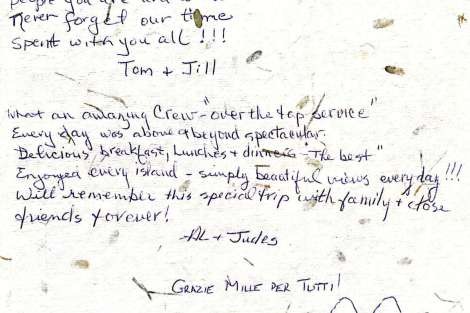 people you are
Never forget our time
Spent with you all !!!
Tom + Jill
What an amazing Crew - "over the top service"
Every day was above + beyond spectacular.
Delicious breakfast, Lunches + dinners - The best"
Enjoyed every island - simply beautiful views every day !!!
Will remember this special trip with family + close
friends forever!
-AL + Judes
GRAZIE MILLE PER TUTTI!